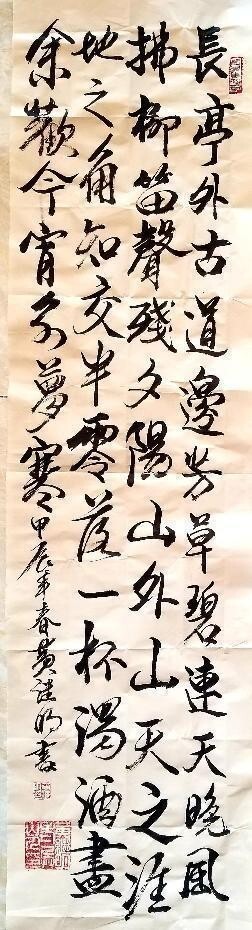 長亭外古道邊芳草碧連天晚風
拂柳笛聲殘夕陽山外山天之涯
地之角知交半零落一杯濁酒盡
余歡今宵别夢寒
甲辰年春黃明書